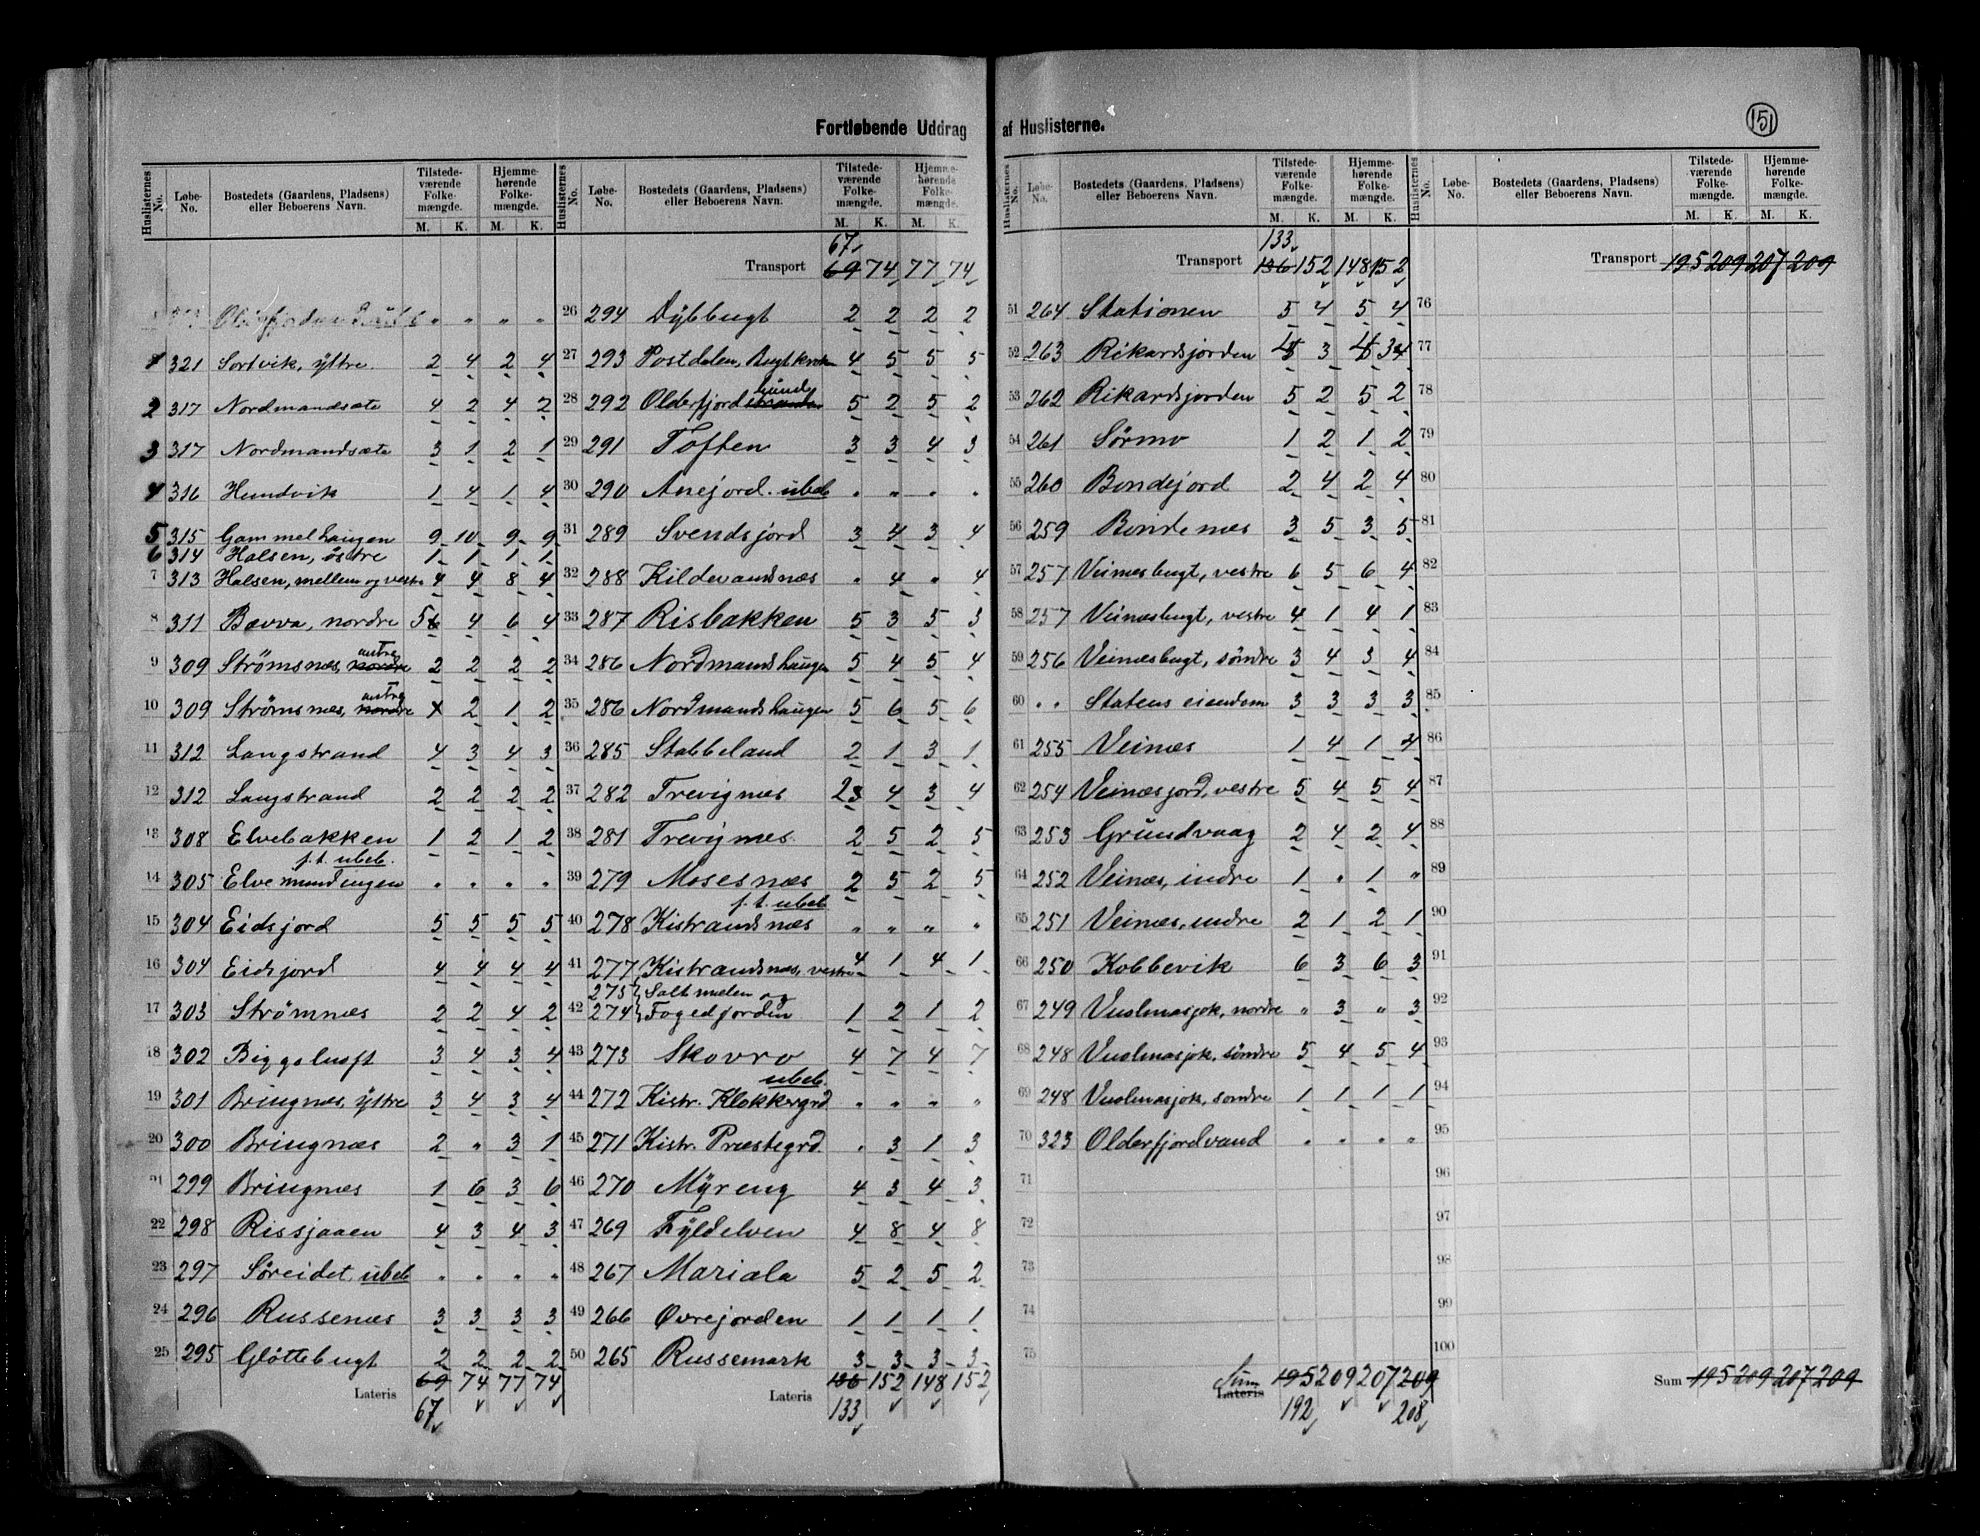 Fortløbende Uddrag af Huslisterne.
151
Huslisternes No. Løbe-No. Bostedets (Gaardens, Pladsens) eller Beboerens Navn. Tilstedeværende Folkemængde. M. K. Hjemmehørende Folkemængde. M. K.
1 321 Sortvik, ÿttre 2 4 2 4
2 317 Nordmandsæte 4 2 4 2
3 317 Nordmandsæte 3 1 2 1
4 316 Hundvik 1 4 1 4
5 315 Gammelhaugen 9 10 9 9
6 314 Halsen, östre 1 1 1 1
7 313 Halsen, mellem og vestre 4 4 8 4
8 311 Bævva, nordre 5 4 6 4
9 309 Strømsnæs, austre nordre 2 2 3 2
10 309 Strømsnæs, austre nordre x 2 1 2
11 312 Langstrand 4 3 4 3
12 312 Langstrand 2 2 2 2
13 308 Elvebakken 1 2 1 2
f. t. ubeb.
14 305 Elvemundingen " " " "
15 304 Eidsjord 5 5 5 5
16 304 Eidsjord 4 4 4 4
17 303 Strømnæs 2 2 4 2
18 302 Biggoluoft 3 4 3 4
19 301 Bringnæs, ÿttre 3 4 3 4
20 300 Bringnæs 2 " 3 1
21 299 Bringnæs 1 6 3 6
22 298 Rissjaaen 4 3 4 3
23 297 Søreidet, ubeb " " " "
24 296 Russenæs 3 3 3 3
25 295 Gløttebugt 2 2 2 2
Lateris 69 74 77 74
67
Huslisternes No. Løbe-No. Bostedets (Gaardens, Pladsens) eller Beboerens Navn. Tilstedeværende Folkemængde. M. K. Hjemmehørende Folkemængde. M. K.
67
Transport 69 74 77 74
26 294 Dÿbbugt 2 2 2 2
27 293 Postdalen, 4 5 5 5
28 292 Olderfjordbund 5 2 5 2
29 291 Toften 3 3 4 3
30 290 Anejord. ubeb " " " "
31 289 Svendsjord 3 4 3 4
32 288 Kildevandsnæs " 4 " 4
33 287 Risbakken 5 3 5 3
34 286 Nordmandshaugen 5 4 5 4
35 286 Nordmandshaugen 5 6 5 6
36 285 Stabbeland 2 1 3 1
37 282 Trevignæs 2 4 3 4
38 281 Trevignæs 2 5 2 5
39 279 Mosesnæs 2 5 2 5
f. t. ubeb
40 278 Kistrandsnæs " " " "
41 277 Kistrandsnæs, vestre 4 1 4 1
275 Saltmælen og
42 274 Fogedjorden 1 2 1 2
43 273 Skovro 4 7 4 7
ubeb.
44 272 Kistr. Klokkergrd " " " "
45 271 Kistr. Præstegrd. " 3 1 3
46 270 Mÿreng 4 3 4 3
47 269 Fÿldelven 4 8 4 8
48 267 Mariala 5 2 5 2
49 266 Øvrejorden 1 1 1 1
50 265 Russemark 3 3 3 3
Lateris 136 152 148 152
133
Huslisternes No. Løbe-No. Bostedets (Gaardens, Pladsens) eller Beboerens Navn. Tilstedeværende Folkemængde. M. K. Hjemmehørende Folkemængde. M. K.
133
Transport 136 152 148 152
51 264 Stationen 5 4 5 4
52 263 Rikardsjorden 4 3 4 3
53 262 Rikardsjorden 5 2 5 2
54 261 Sørmo 1 2 1 2
55 260 Bondejord 2 4 2 4
56 259 Bondenæs 3 5 3 5
57 257 Veinæsbugt, vestre 6 5 6 4
58 257 Veinæsbugt, vestre 4 1 4 1
59 256 Veinæsbugt, søndre 3 4 3 4
60 " " Statens eiendom 3 3 3 3
61 255 Veinæs 1 4 1 4
62 254 Veinæsjord, vestre 5 4 5 4
63 253 Grundvaag 2 4 2 4
64 252 Veinæs, indre 1 " 1 "
65 251 Veinæs, indre 2 1 2 1
66 250 Kobbevik 6 3 6 3
67 249 Vuolmasjok, nordre " 3 " 3
68 248 Vuolmasjok, søndre 5 4 5 4
69 248 Vuolmasjok, søndre 1 1 1 1
70 323 Olderfjordvand " " " "
71
72
73
74
75
Sum Lateris 195 209 207 209
192 208
Huslisternes No. Løbe-No. Bostedets (Gaardens, Pladsens) eller Beboerens Navn. Tilstedeværende Folkemængde. M. K. Hjemmehørende Folkemængde. M. K.
Transport 195 209 207 209
76
77
78
79
80
81
82
83
84
85
86
87
88
89
90
91
92
93
94
95
96
97
98
99
100
Sum 195 209 207 209